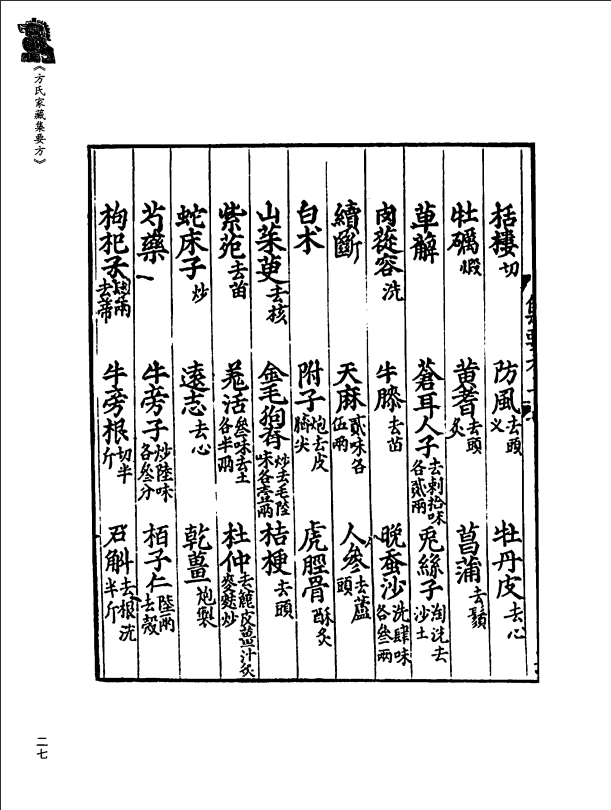 《方氏家藏集要方》
栝樓切 防風去頭义 牡丹皮去心
牡礪煆 黄蓍去頭炙 菖蒲去鬚
萆解 蒼耳人子去刺拾味各貳兩 兎絲子淘洗去沙土
肉蓯容洗 牛膝去苗 晚蚕沙洗肆味各叁兩
續斷 天麻貳味各伍兩 人參去蘆頭
白术 附子炮去皮臍尖 虎脛骨酥炙
山茱萸去核 金毛狗脊炒去毛陸味各壹兩 桔梗去頭
紫菀去苗 羌活叁味去土各半兩 杜仲去麄皮薑汁炙麥麩炒
蛇床子炒 遠志去心 乾薑炮製
芍藥一 牛旁子炒陸味各叁分 栢子仁陸兩去殻
枸杞子去蒂 牛旁根切半斤 石斛去根洗半斤
二七